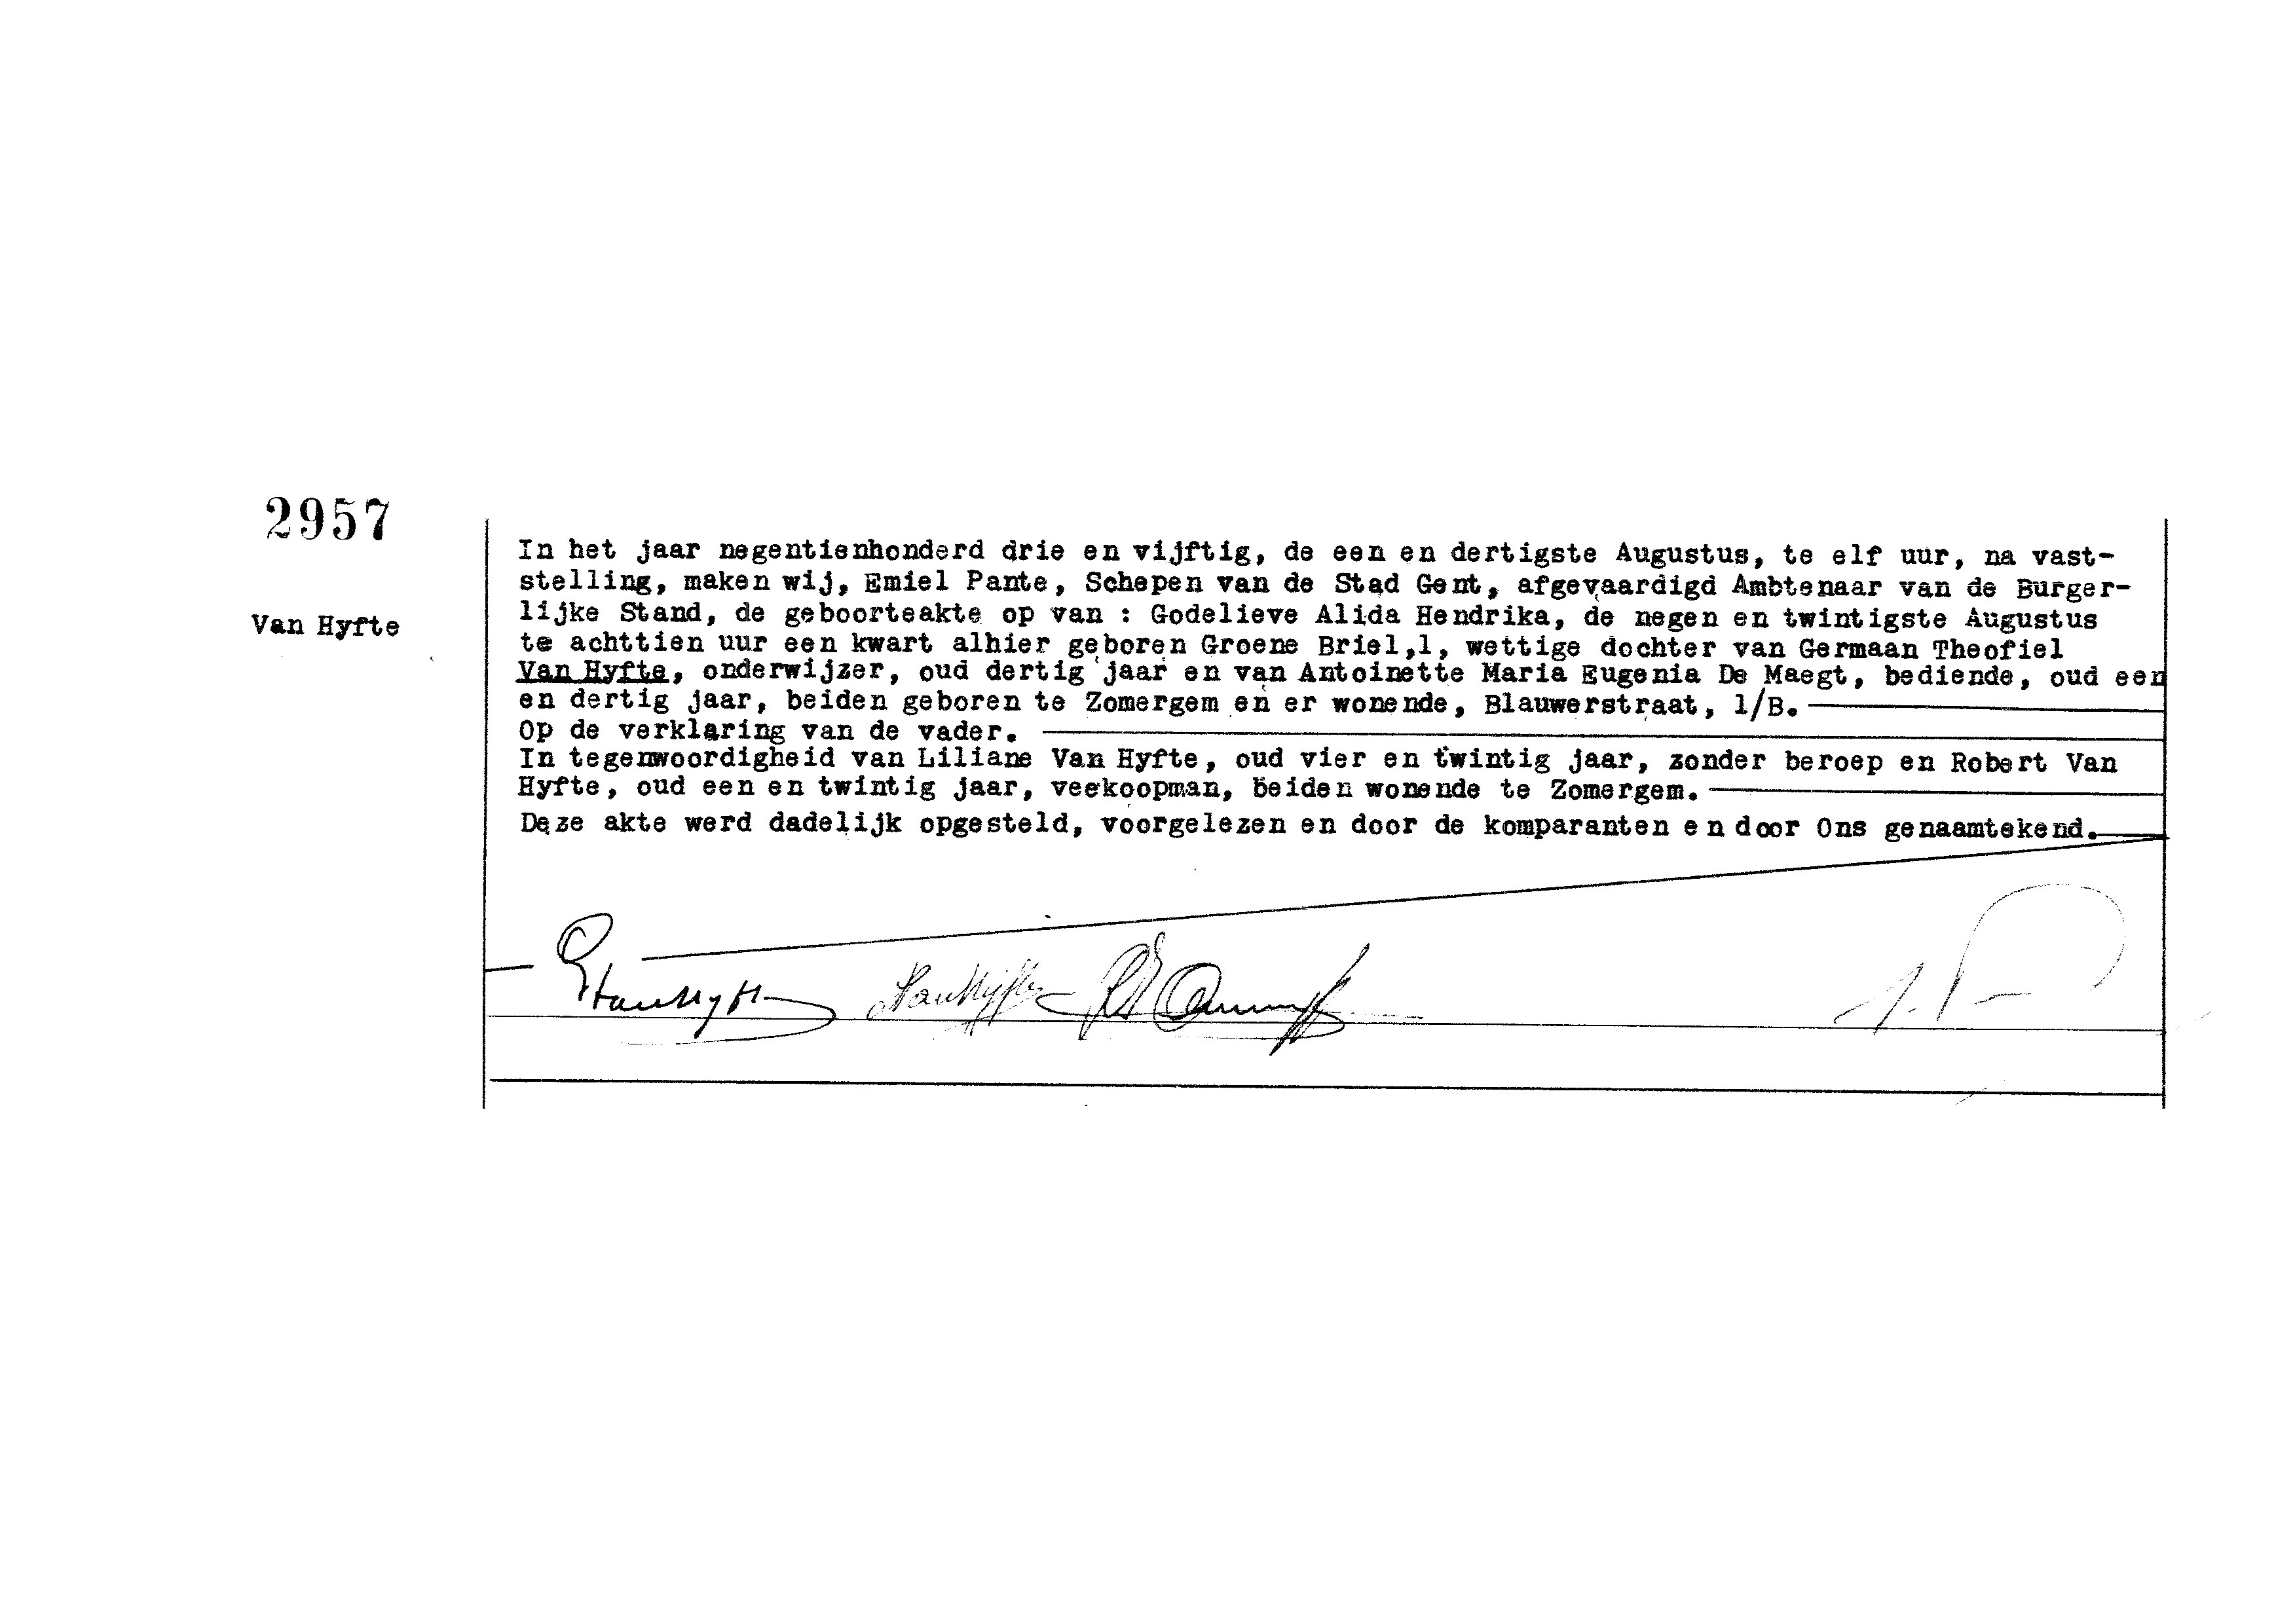 2957
Van Hyfte
In het jaar negentienhonderd drie en vijftig, de een en dertigste Augustus, te elf uur, na vast-
stelling, maken wij, Emiel Pante, Schepen van de Stad Gent, afgevaardigd Ambtenaar van de Burger-
lijke Stand, de geboorteakte op van : Godelieve Alida Hendrika, de negen en twintigste Augustus
te achttien uur een kwart alhier geboren Groene Briel,1, wettige dochter van Germaan Theofiel
Van Hyfte, onderwijzer, oud dertig jaar en van Antoinette Maria Eugenia De Maegt, bediende, oud een
en dertig jaar, beiden geboren te Zomergem en er wonende, Blauwerstraat, 1/B.
Op de verklaring van de vader.
In tegenwoordigheid van Liliane Van Hyfte, oud vier en twintig jaar, zonder beroep en Robert Van
Hyfte, oud een en twintig jaar, veekoopman, beiden wonende te Zomergem.
Deze akte werd dadelijk opgesteld, voorgelezen en door de komparanten en door Ons genaamtekend.
VanHyfte